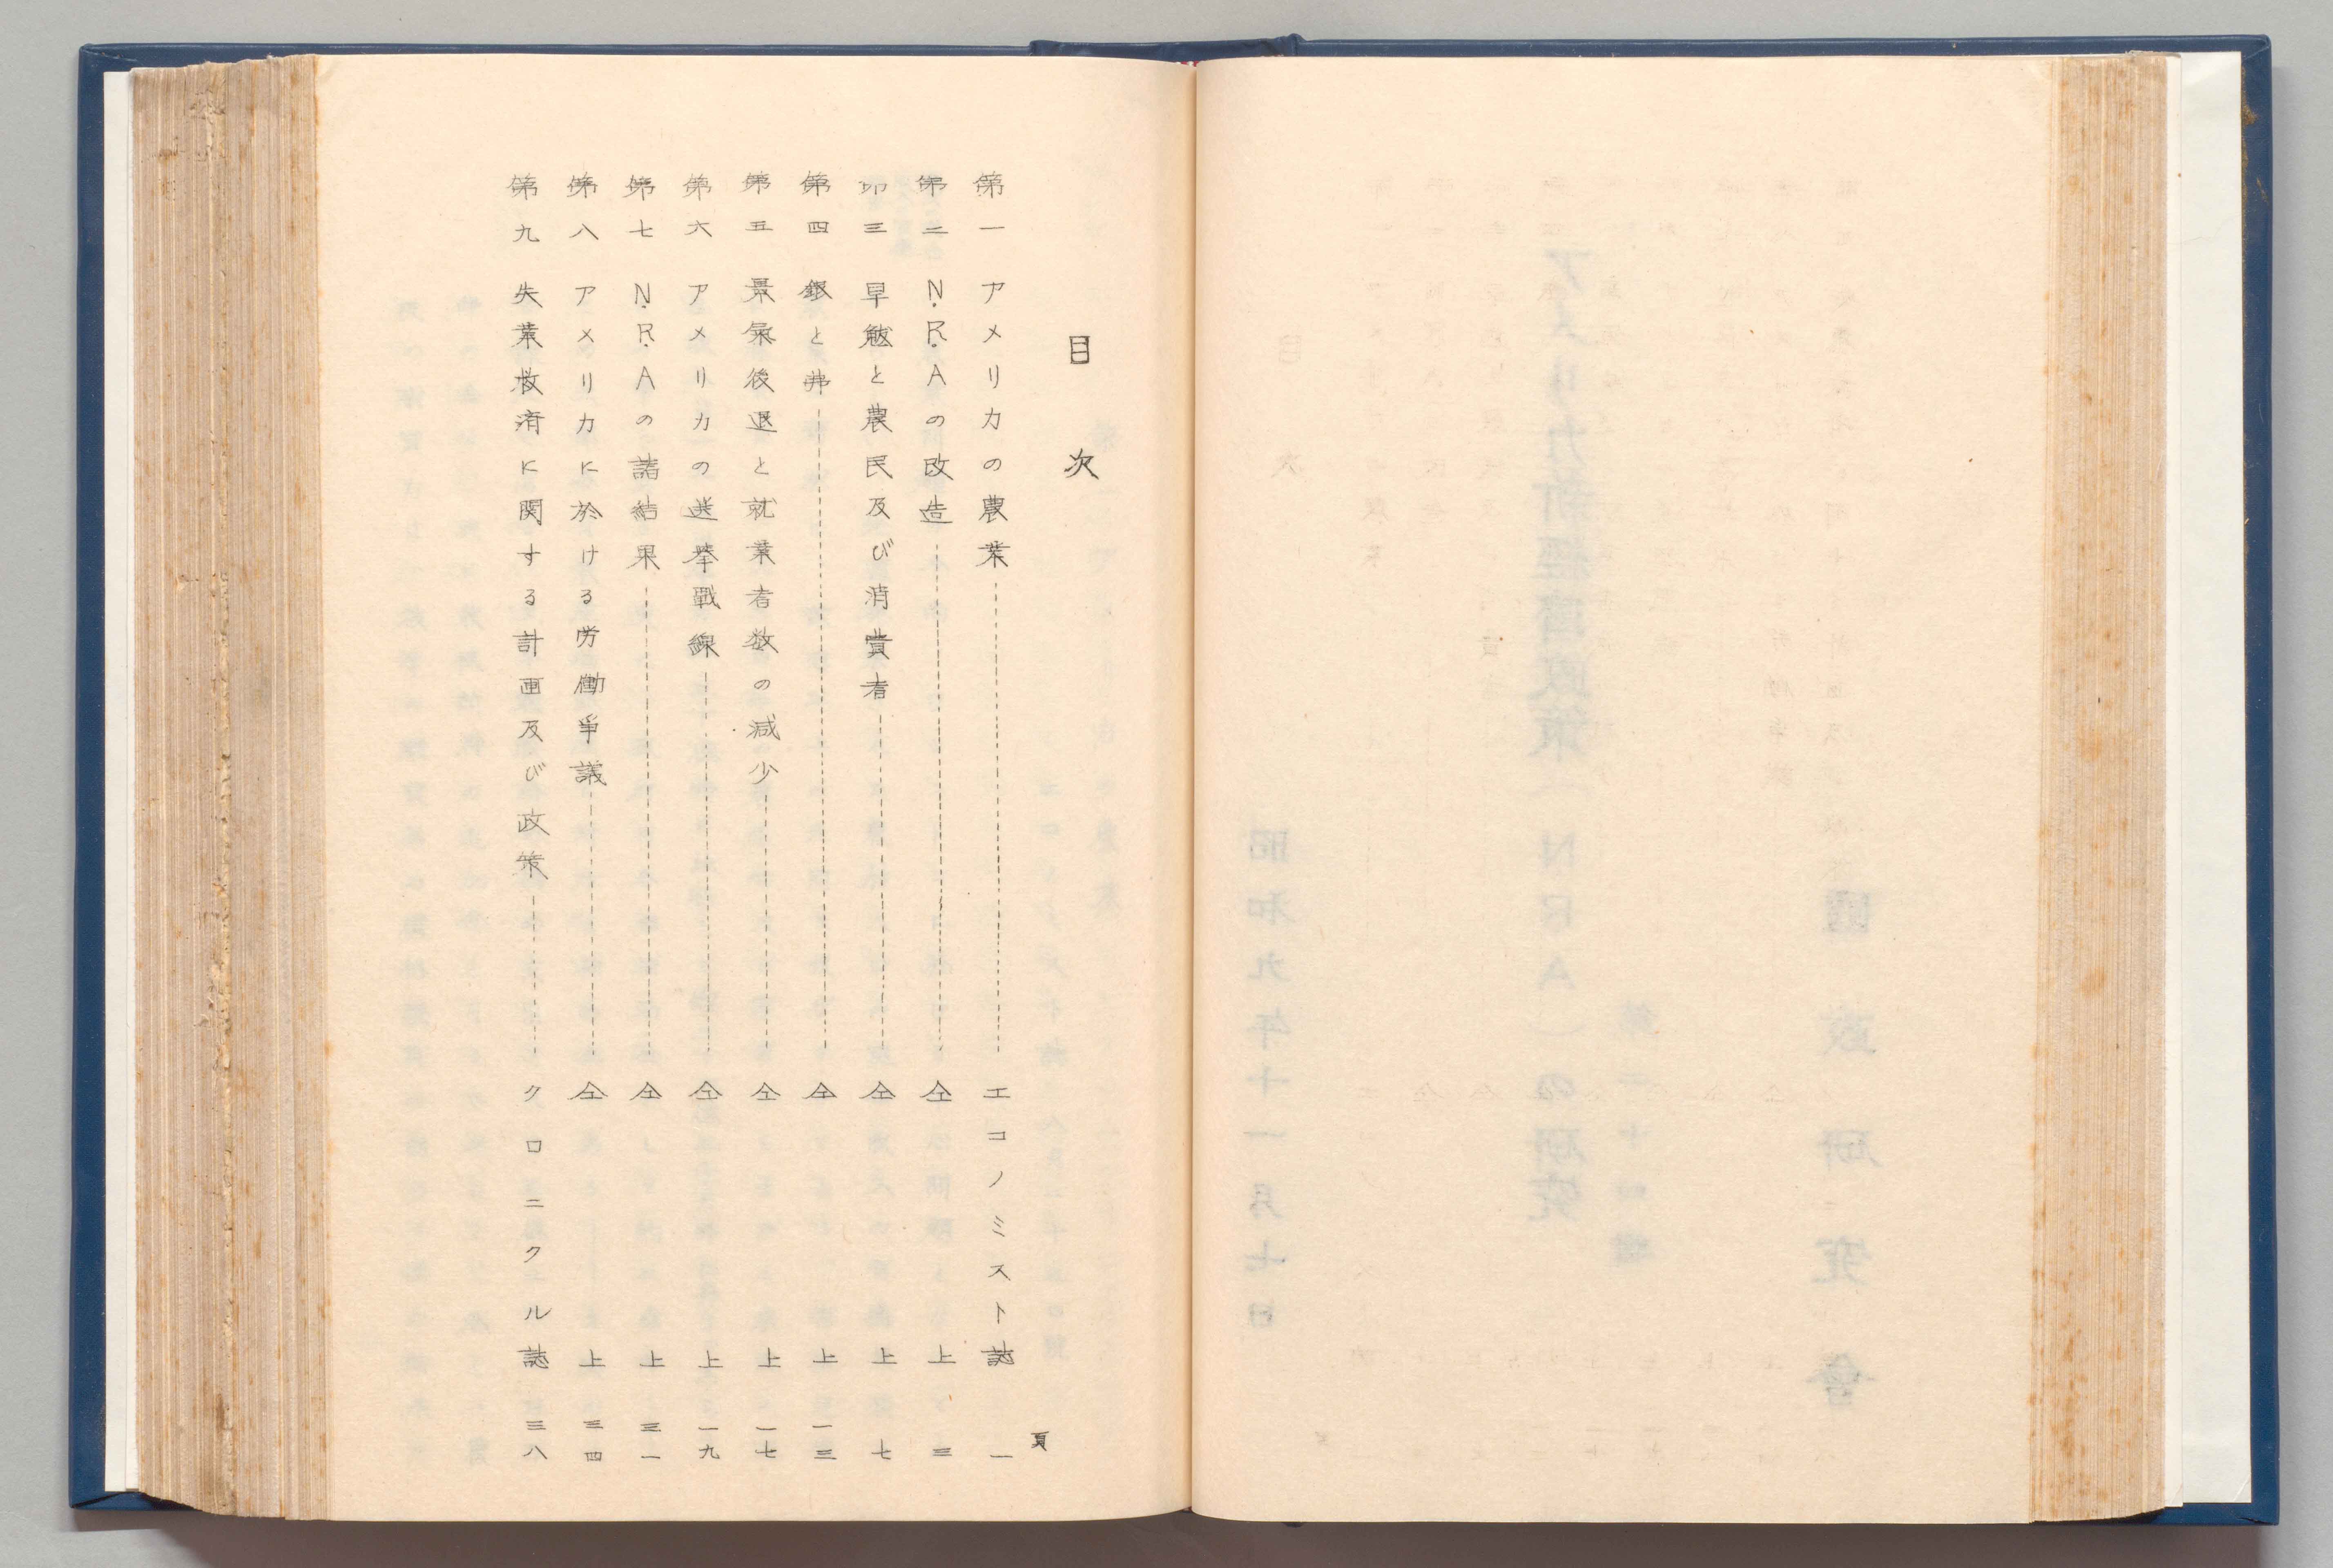 目次
頁
第一 アメリカの農業 エコノミスト誌 一
第二 N.R.Aの改造 仝上 三
第三 旱魃と農民及び消費者 仝上 七
第四 銀と弗 仝上 一三
第五 景氣後退と就業者数の減少 仝上 一七
第六 アメリカの選挙戰線 仝上 一九
第七 N.R.Aの諸結果 仝上 三一
第八 アメリカに於ける労働爭議 仝上 三四
第九 失業救済に関する計画及び政策 クロニクル誌 三八